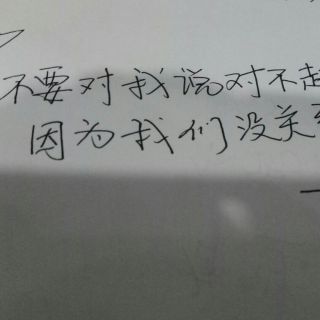 不要对我说对不起
因为我们没关系